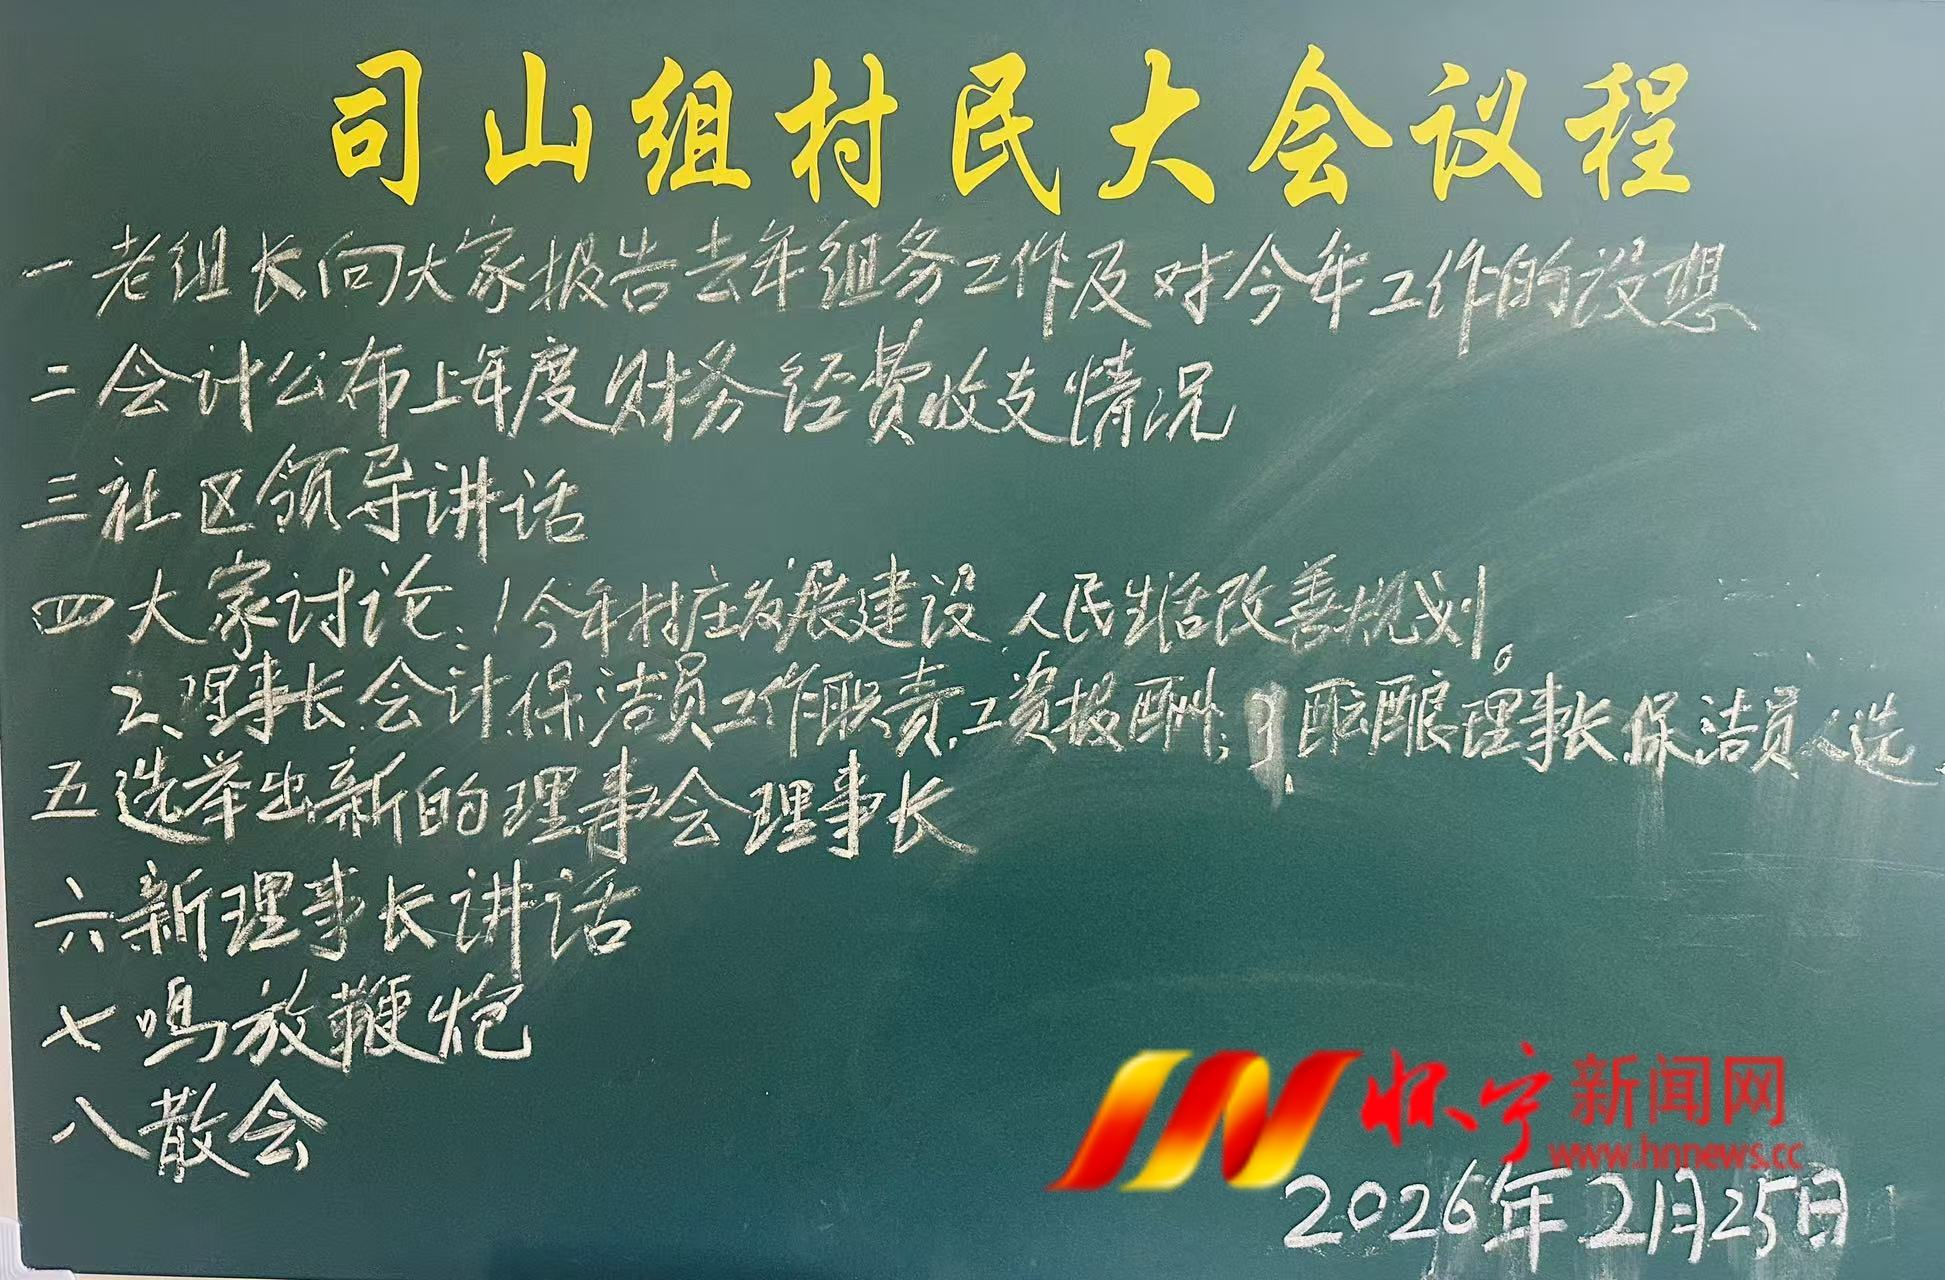 司山组村民大会议程
一 老组长向大家报告去年组务工作及对今年工作的设想
二 会计公布上年度财务经费收支情况
三 社区领导讲话
四 大家讨论:1今年村庄发展建设 人民生活改善规划。
2、理事长.会计.保洁员工作职责.工资报酬;3酝酿理事长保洁员人选.
五 选举出新的理事会理事长
六 新理事长讲话
七 鸣放鞭炮
八 散会
怀宁新闻网
www.hnnews.cc
2026年2月25日